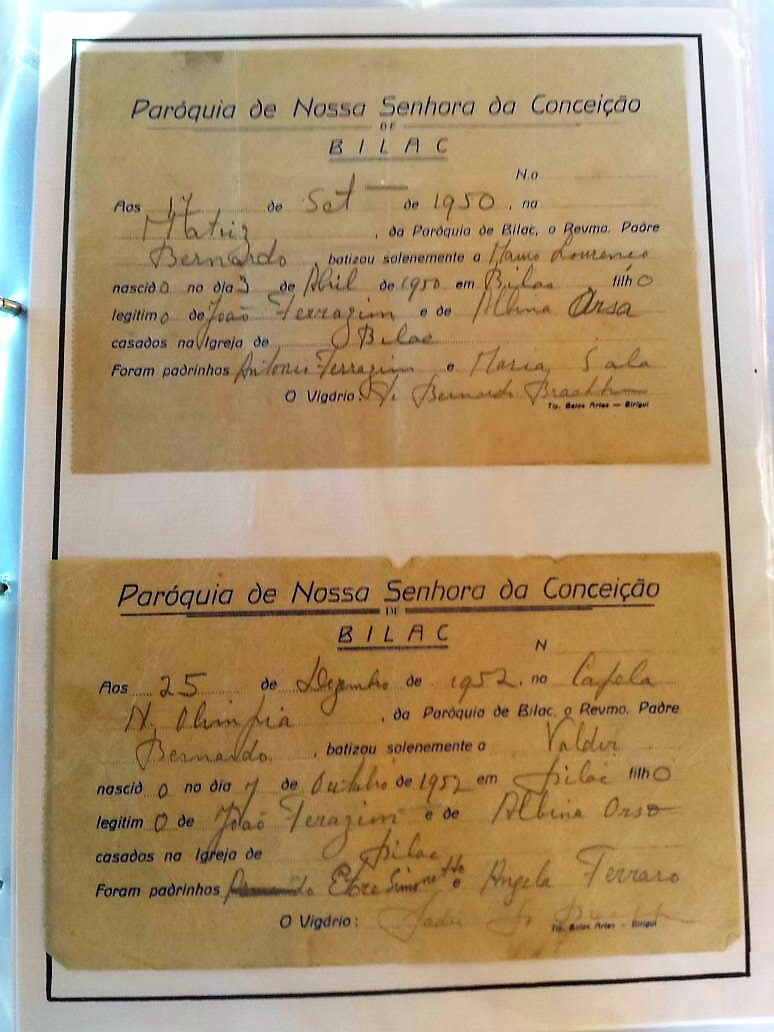 Paróquia de Nossa Senhora da Conceição
DE
BILAC
N.o
Aos 17 de Set de 1950, na
Matriz, da Paróquia de Bilac, o Revmo. Padre
Bernardo, batizou solenemente a Mauro Lourenço
nascido no dia 3 de Abril de 1950 em Bilac filho
legitimo de João Ferrazim e de Albina Orsa
casados na Igreja de Bilac
Foram padrinhos Antonio Ferrazim e Maria Sala
O Vigário: Bernardo
Tip. Belas Artes — Birigui
Paróquia de Nossa Senhora da Conceição
DE
BILAC
N
Aos 25 de Dezembro de 1952, na Capela
N. Olimpia, da Paróquia de Bilac, o Revmo. Padre
Bernardo, batizou solenemente a Valdir
nascido no dia 7 de Outubro de 1952 em Bilac filho
legitimo de João Ferazim e de Albina Orso
casados na Igreja de Bilac
Foram padrinhos Etore Simonetto e Angela Ferraro
O Vigário: Padre
Tip. Belas Artes — Birigui